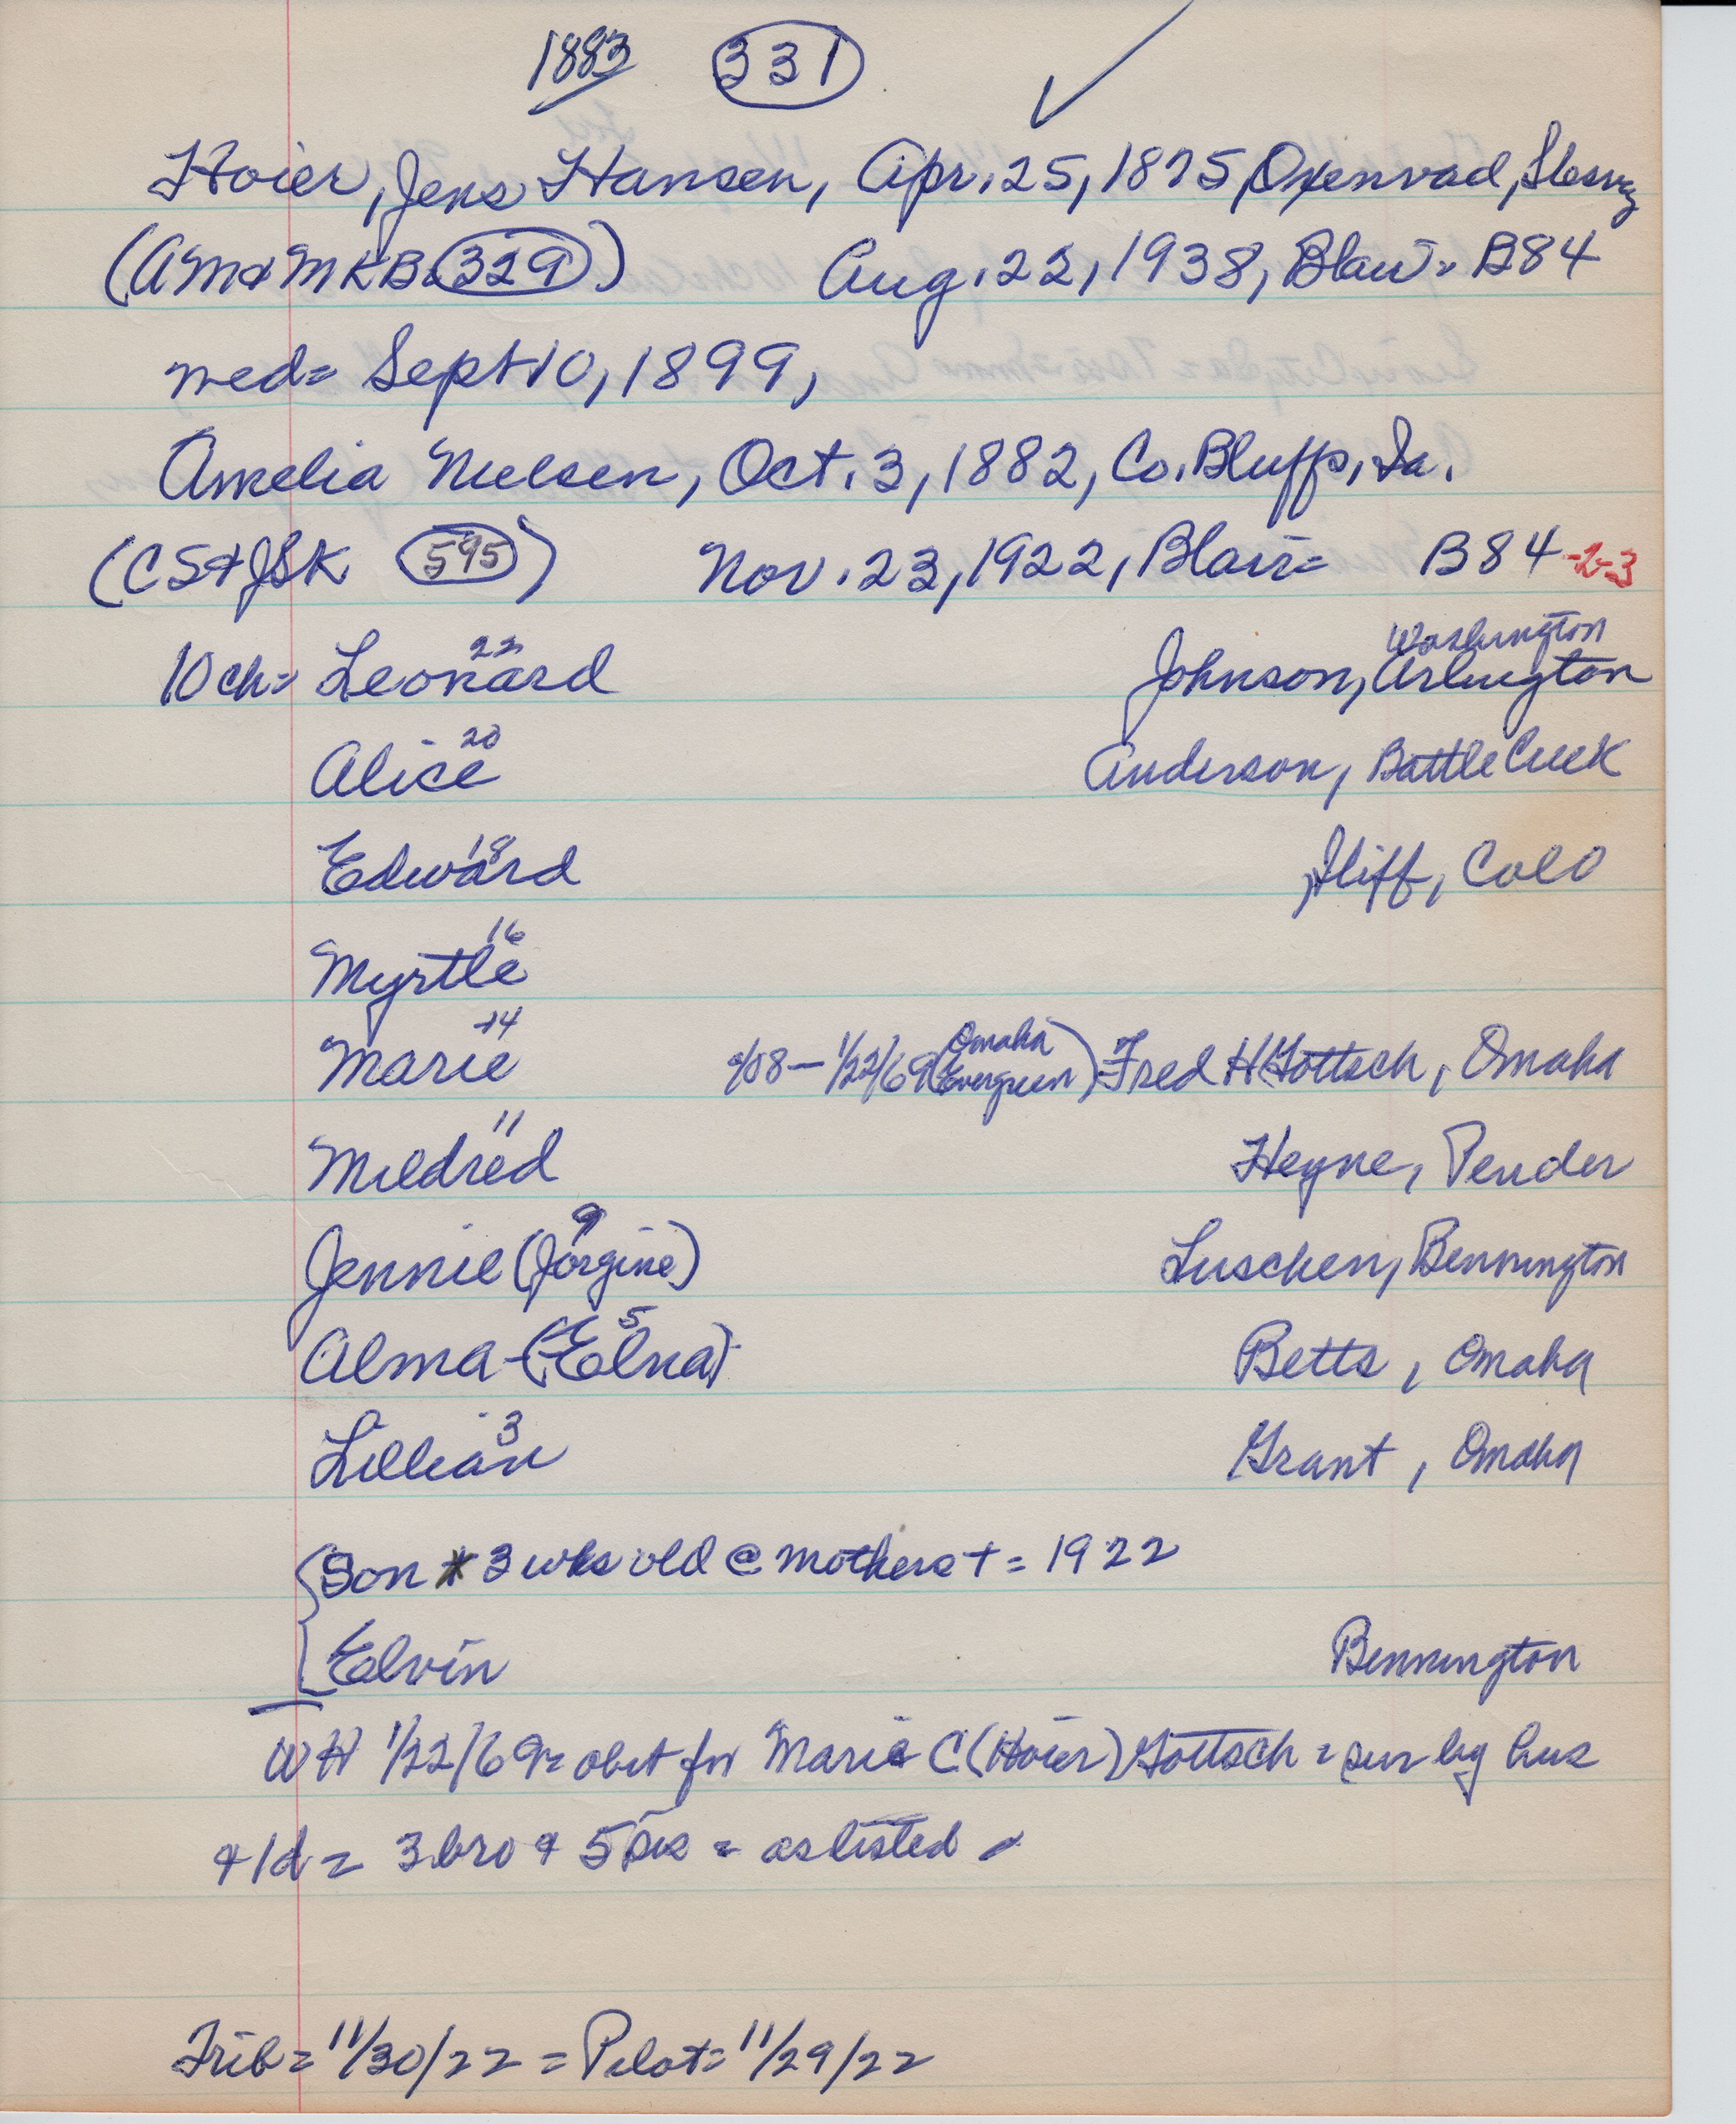 1883 331 ✓
Hoier, Jens Hansen, Apr. 25, 1875, Oxenvad, Slesvg
(AM+MKB 329) Aug. 22, 1938, Blair = B84
med = Sept 10, 1899,
Amelia Nielsen, Oct. 3, 1882, Co. Bluffs, Ia.
(CS+JSK 595) Nov. 23, 1922, Blair = B84-2-3
Washington
10 ch = Leonard 22 Johnson, Arlington
Alice 20 Anderson, Battle Creek
Edward 18 , Iliff, Colo
Myrtle 16
Marie 14 9/08 – 1/22/69 (Omaha Evergreen) Fred H Gottsch, Omaha
Mildred 11 Heyne, Pender
Jennie (Jorgine) 9 Luschen, Bennington
Alma (Elna) 5 Betts, Omaha
Lillian 3 Grant, Omaha
Son * 3 wks old @ mothers + = 1922
Elvin Bennington
WH 1/22/69 = obit for Marie C (Hoier) Gottsch = sur by hus
+ 1d = 3 bro + 5 sis = as listed
Trib = 11/30/22 = Pilot = 11/29/22